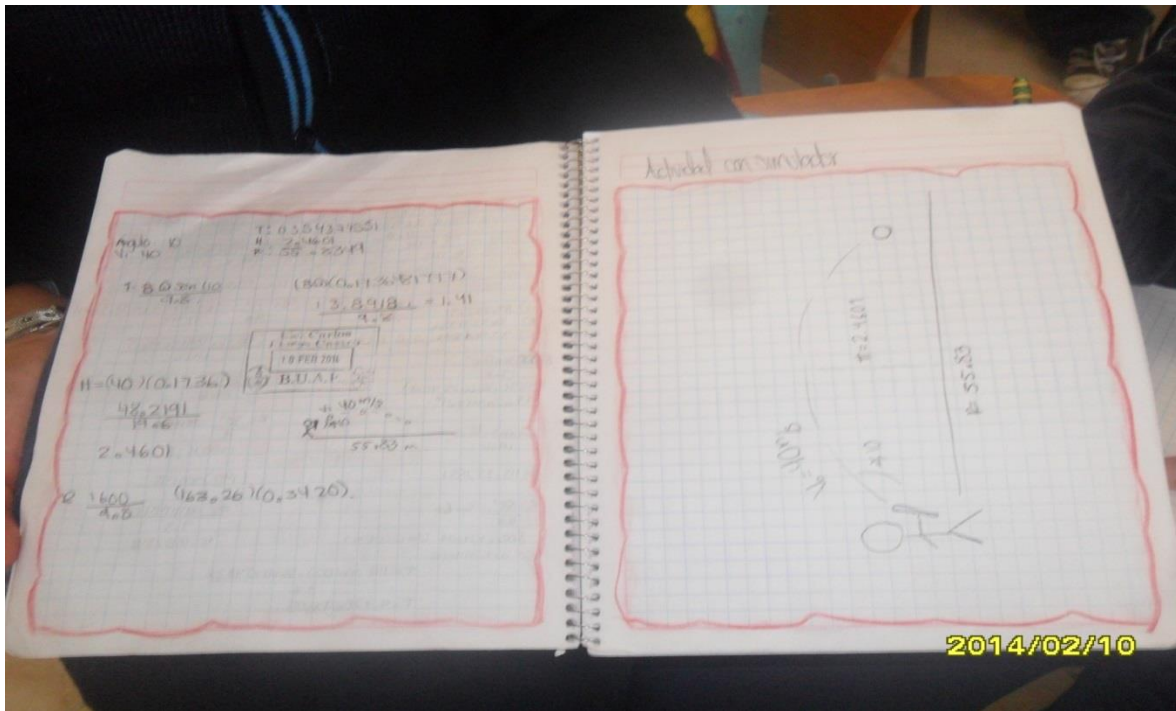 Angulo 10
Vi 40
H: 2.4601
R: 55.8349
T= 80 sen 10
9.8
(80)(0.1736481777)
13.8918 = 1.41
9.8
10 FEB 2014
B.U.A.P.
H=(40)(0.1736)
48.2191
19.6
2.4601
Vi 40 m/s
55.83 m
R 1600 (163.26)(0.3420)
9.8
Actividad con simulador
40
10
H=2.4601
R=55.83
2014/02/10